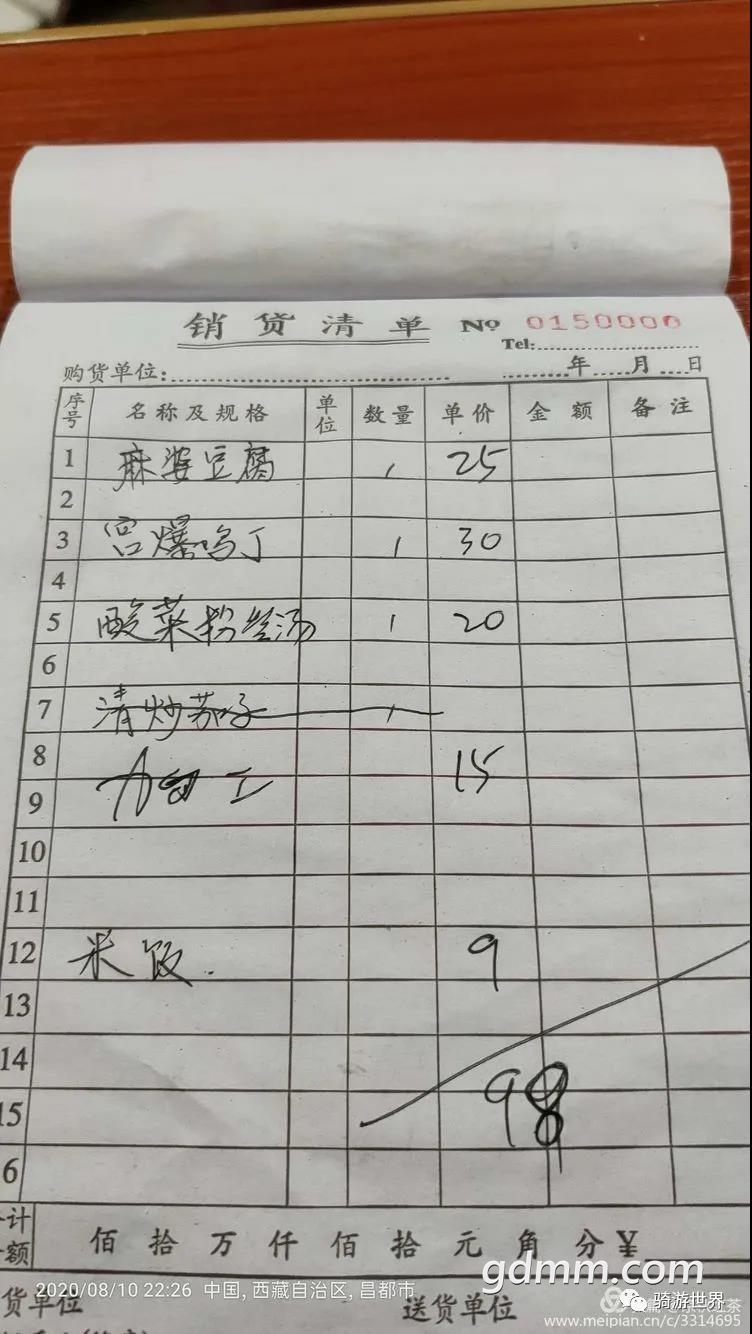 销货清单 № 0150000
Tel:
购货单位: 年 月 日
序号 名称及规格 单位 数量 单价 金额 备注
1 麻婆豆腐 1 25
2
3 宫爆鸡丁 1 30
4
5 酸菜粉丝汤 1 20
6
7 清炒茄子 1
8 加工 15
9
10
11
12 米饭. 9
13
14
15 98
6
计
额 佰 拾 万 仟 佰 拾 元 角 分 ¥
gdmm.com
2020/08/10 22:26 中国, 西藏自治区, 昌都市
货单位 送货单位
骑游世界
www.meipian.cn/c/3314695